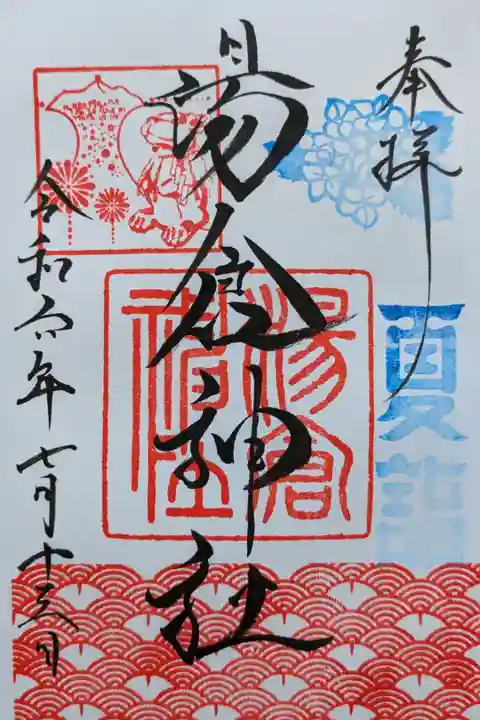 奉拝
夏詣
湯倉神社
湯倉
神社
令和六年七月十三日